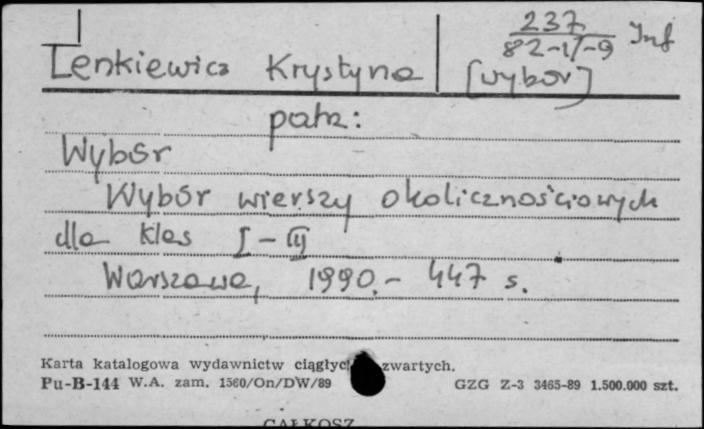 237
82-1/-9 Inf
Lenkiewicz Krystyna [wybór]
patrz:
Wybór
Wybór wierszy okolicznościowych
dla klas I - III
Warszawa, 1990.- 447 s.
Karta katalogowa wydawnictw ciągłyc zwartych.
Pu-B-144 W.A. zam. 1560/On/DW/89 GZG Z-3 3465-89 1.500.000 szt.
CAŁKOSZ